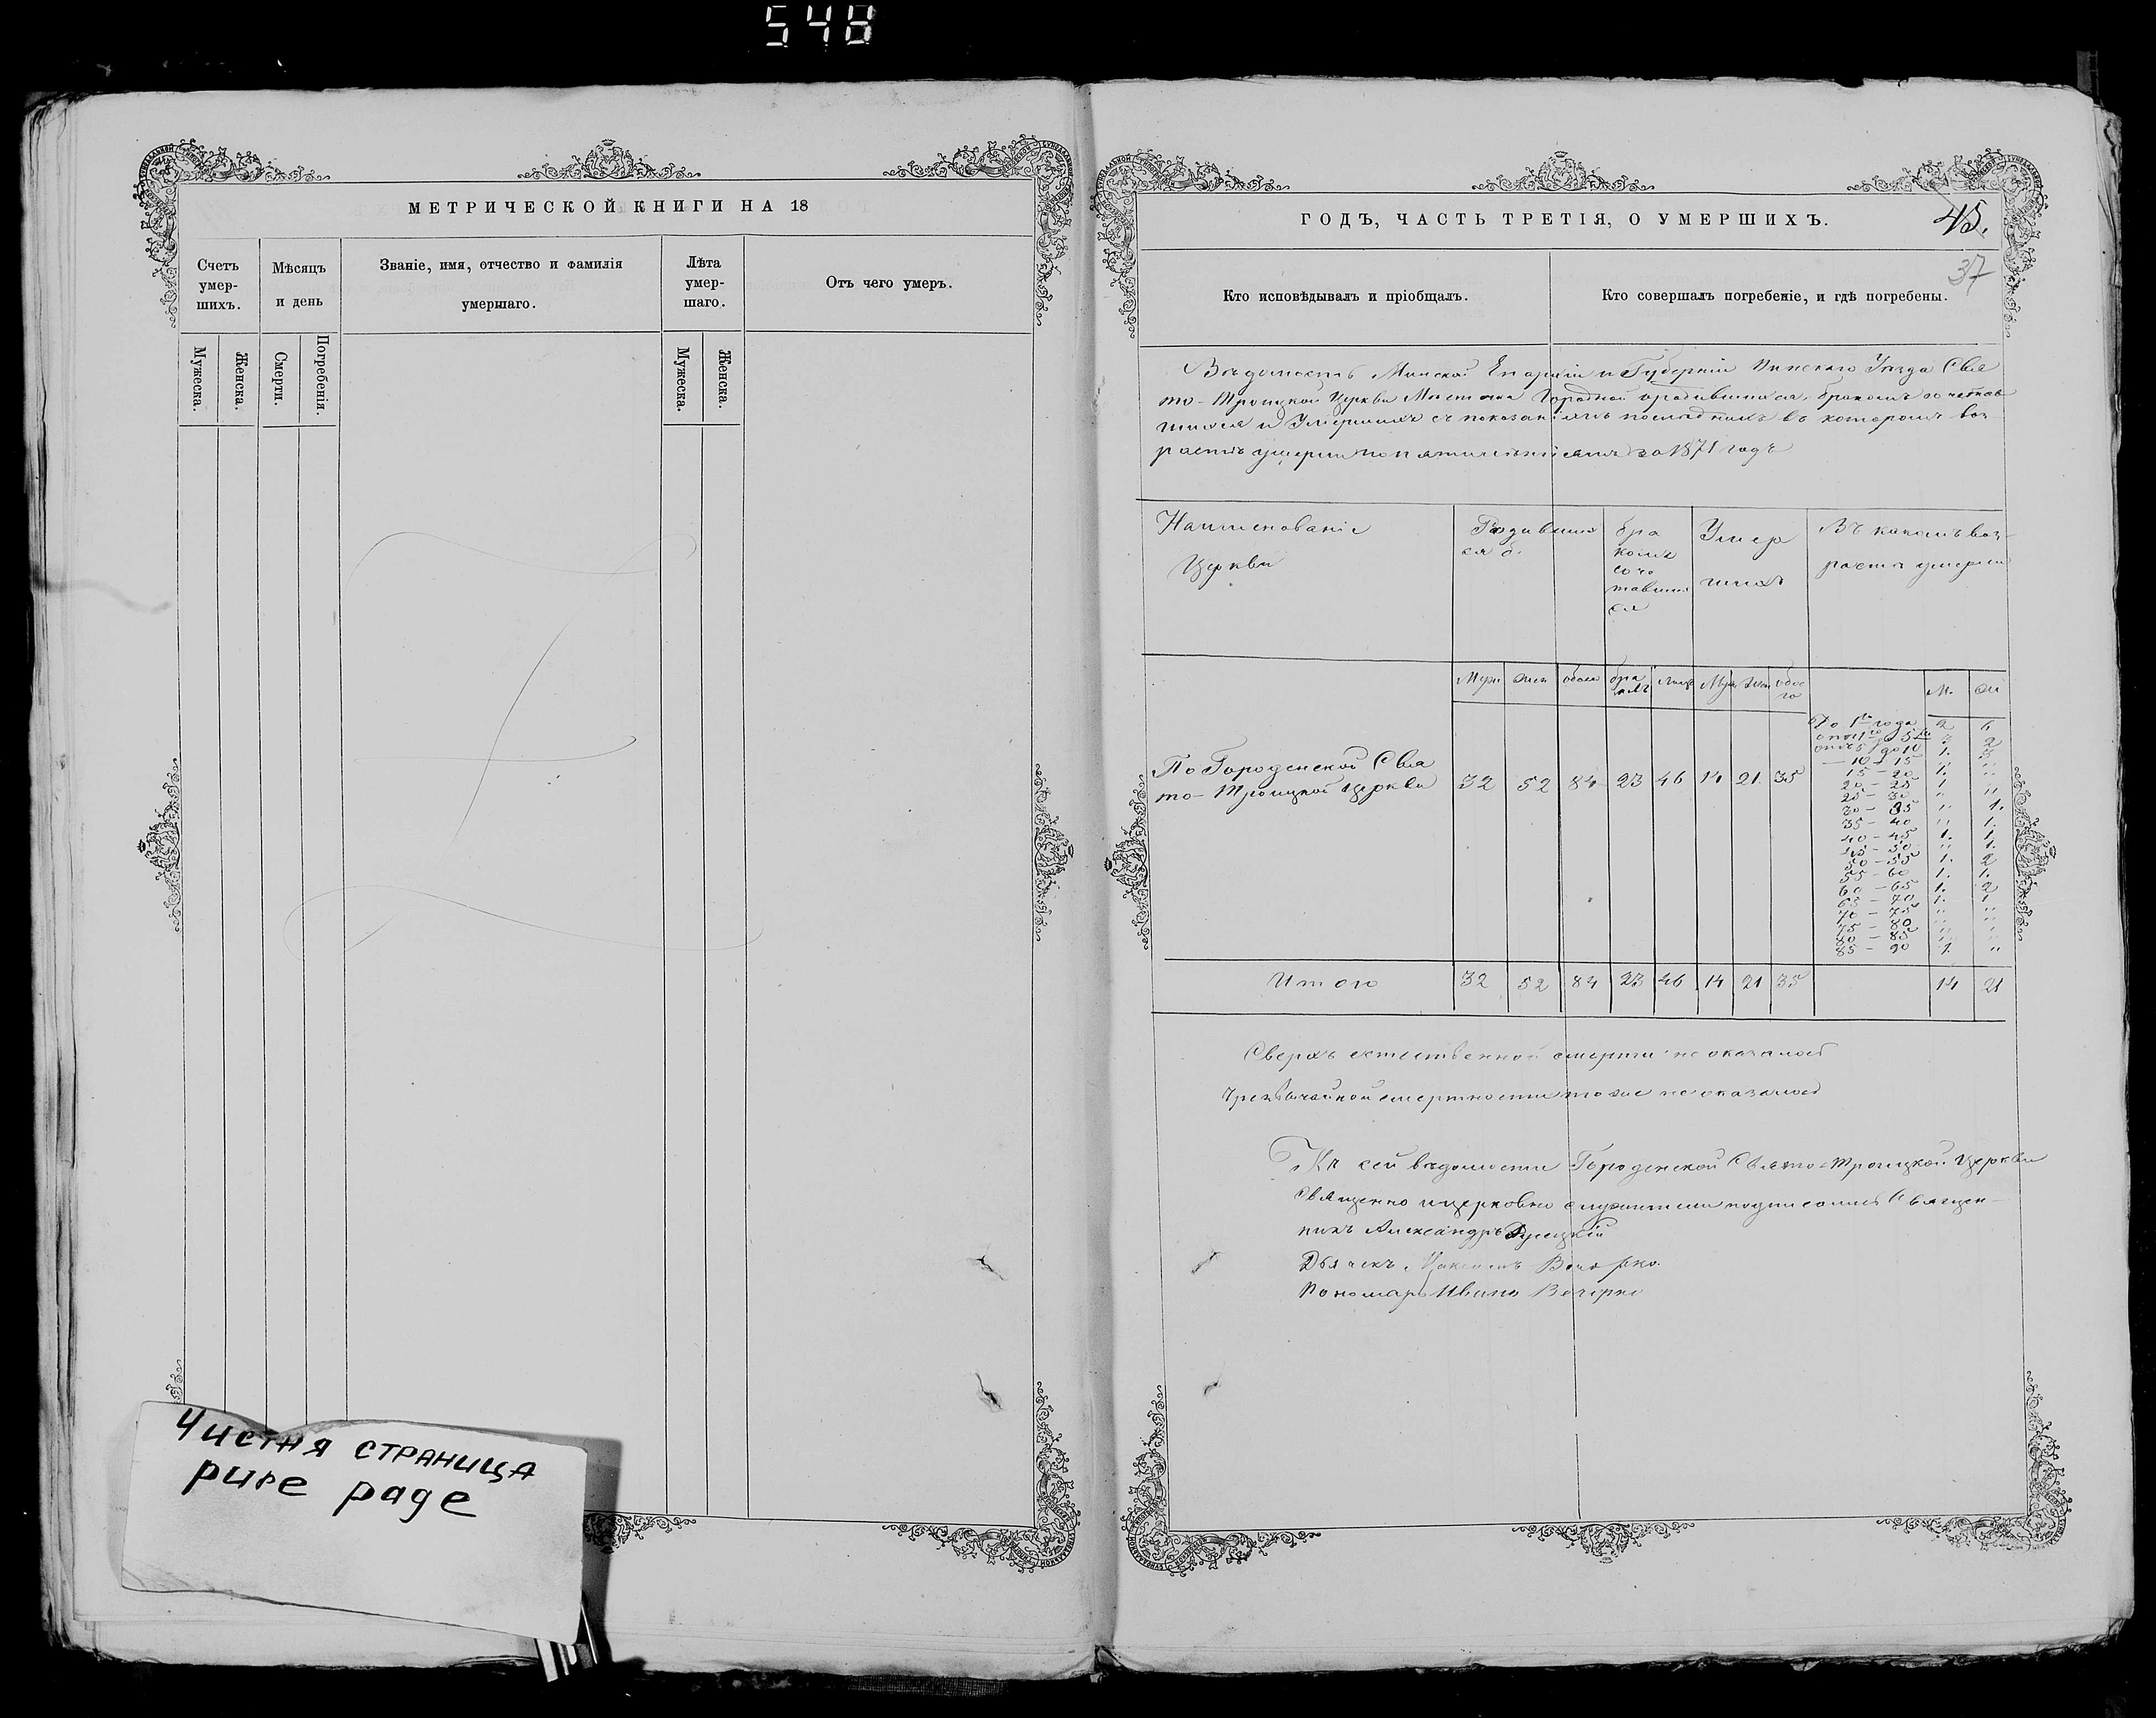 548
МЕТРИЧЕСКОЙ КНИГИ НА 18
Счетъ умер- шихъ.
Мѣсяцъ и день
Званіе, имя, отчество и фамилія умершаго.
Лѣта умер- шаго.
Отъ чего умеръ.
Мужеска.
Женска.
Смерти.
Погребенія.
Мужеска.
Женска.
Чистая страница
pure page
ГОДЪ, ЧАСТЬ ТРЕТІЯ, О УМЕРШИХЪ.
45.
37
Кто исповѣдывалъ и пріобщалъ.
Кто совершалъ погребеніе, и гдѣ погребены.
Вѣдомость Минской Епархіи и Губерніи Пинскаго Уѣзда Свя
то-Троицкой Церкви Мѣстечка Городной о родившихся, бракомъ сочетав
шихся и Умершихъ съ показаніемъ послѣднихъ въ которомъ воз
растѣ умерли по пятилѣтіямъ за 1871 годъ
Наименованіе Церкви
Родивших ся
бра комъ соче тавших ся
Умер шихъ
Въ какомъ воз- растѣ умерли
Муж Жен обоего бра ковъ лицъ Муж Жен обое го М. Ж
По Городенской Свя
то-Троицкой Церкви 32 52 84 23 46 14 21 35
До 1го года 2 6
15 – 20 1. "
20 – 25 1
25 – 30 " "
30 – 35 " 1.
35 – 40 " 1.
40 – 45 1. 1.
45 – 50 " 1.
50 – 55 1. 2
55 – 60 1. 1.
60 – 65 1. 2
65 – 70 1. 1
70 – 75 " "
75 – 80 " "
80 – 85 " "
85 – 90 1. "
Итого 32 52 84 23 46 14 21 35 14 21
Сверхъ естественной смерти не оказалось
Чрезвычайной смертности тоже не оказалось
Къ сей вѣдомости Городенской Свято-Троицкой Церкви
Священно и церковно служители подписались Священ-
никъ Александръ
Дьячекъ
Пономарь Иванъ Вечорко